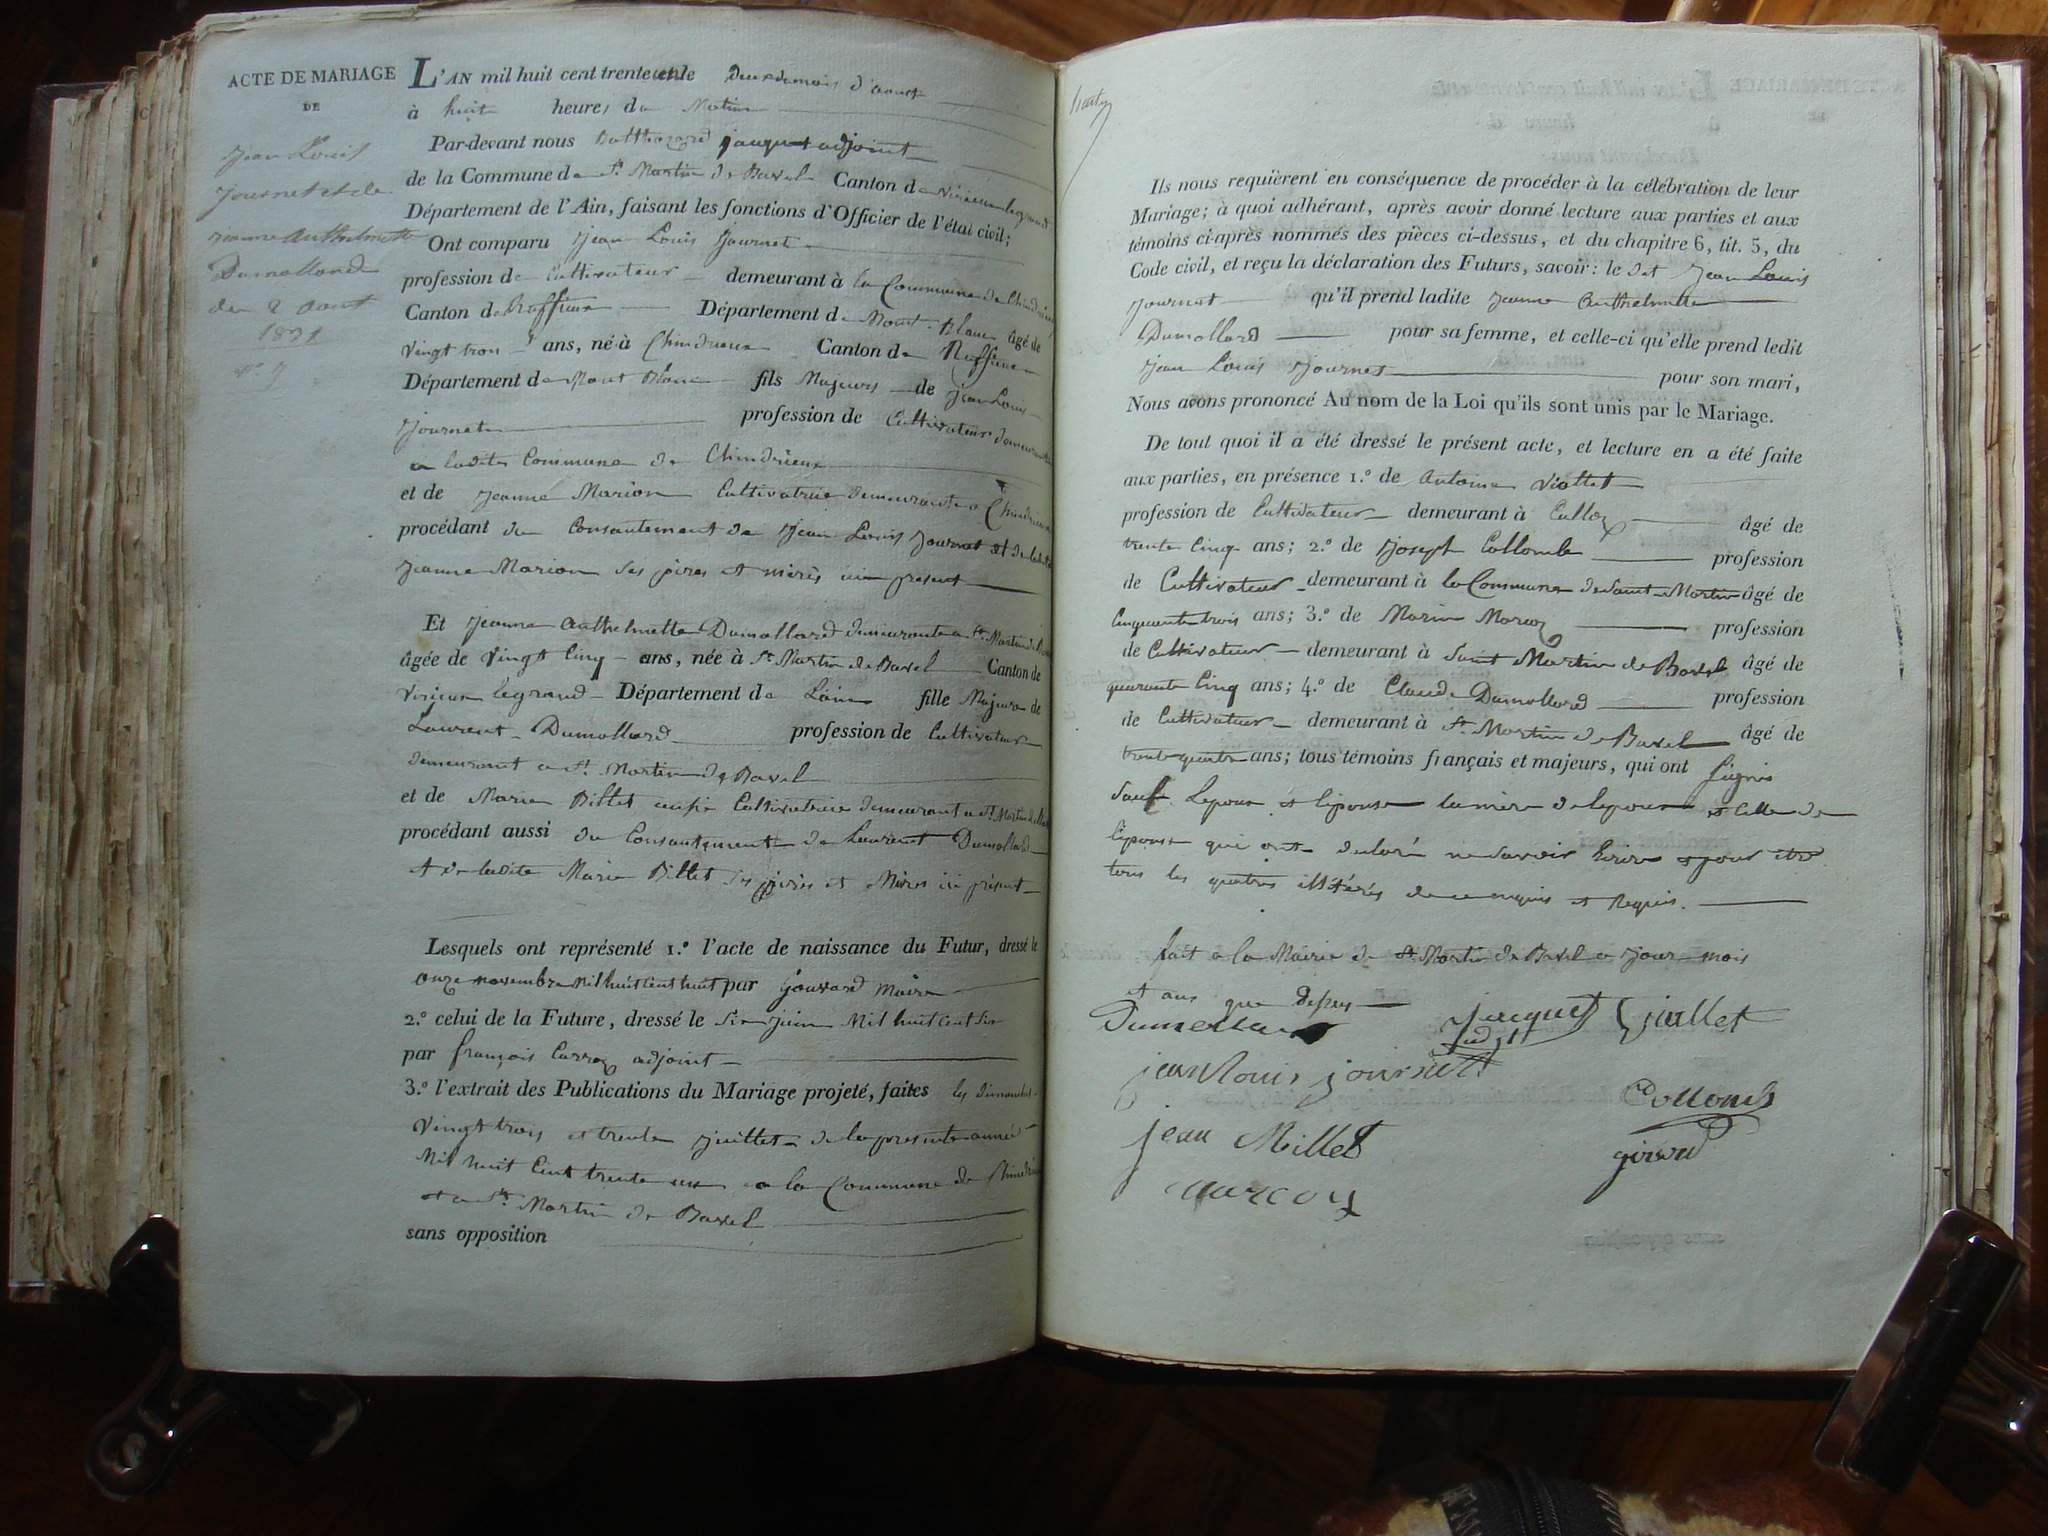 ACTE DE MARIAGE
DE
Jean Louis
Journet et de
jeanne Anthelmette
Dumollard
du 2 aout
1831
n.° 7
L'AN mil huit cent trente un le deux du mois d'aout
à huit heures du Matin
Par-devant nous Balthazard jacquet adjoint
de la Commune de St Martin de Bavel Canton de virieux legrand
Département de l'Ain, faisant les fonctions d'Officier de l'état civil;
Ont comparu Jean Louis Journet
profession de Cultivateur demeurant à la Commune de Chindrieux
Canton de Ruffieux Département de Mont-Blanc âgé de
vingt trois ans, né à Chindrieux Canton de Ruffieux
Département de Mont Blanc fils Majeurs de Jean Louis
Journet profession de Cultivateur demeurant
a ladite Commune de Chindrieux
et de Jeanne Marion Cultivatrice demeurante a Chindrieux
procédant du Consantement de Jean Louis Journet et de ladite
Jeanne Marion ses pères et mères ici present
Et Jeanne Anthelmette Dumollard demeurante a St Martin de Bavel
âgée de vingt Cinq ans, née à St Martin de Bavel Canton de
virieux legrand Département de Lain fille Majeure de
Laurent Dumollard profession de Cultivateur
demeurant a St Martin de Bavel
et de Marie Billet aussi Cultivatrice demeurant a St Martin de Bavel
procédant aussi du Consantement de Laurent Dumollard
et de ladite Marie Billet ses pères et Mères ici présent
Lesquels ont représenté 1.° l'acte de naissance du Futur, dressé le
onze novembre Mil huit Cent huit par Maire
2.° celui de la Future, dressé le six juin Mil huit Cent six
par françois Carraz adjoint
3.° l'extrait des Publications du Mariage projeté, faites les dimanches
vingt trois et trente Juillet de la presente année
Mil huit Cent trente un a la Commune de Chindrieux
et a St Martin de Bavel
sans opposition
Ils nous requièrent en conséquence de procéder à la célébration de leur
Mariage; à quoi adhérant, après avoir donné lecture aux parties et aux
témoins ci-après nommés des pièces ci-dessus, et du chapitre 6, tit. 5, du
Code civil, et reçu la déclaration des Futurs, savoir: le dit Jean Louis
Journet qu'il prend ladite Jeanne Anthelmette
Dumollard pour sa femme, et celle-ci qu'elle prend ledit
Jean Louis Journet pour son mari,
Nous avons prononcé Au nom de la Loi qu'ils sont unis par le Mariage.
De tout quoi il a été dressé le présent acte, et lecture en a été faite
aux parties, en présence 1.° de Antoine Viollet
profession de Cultivateur demeurant à Culloz âgé de
trente Cinq ans; 2.° de Joseph Collomb profession
de Cultivateur demeurant à la Commune de Saint Martin âgé de
Cinquante trois ans; 3.° de Marin Marcoz profession
de Cultivateur demeurant à Saint Martin de Bavel âgé de
quarante Cinq ans; 4.° de Claude Dumollard profession
de Cultivateur demeurant à St Martin de Bavel âgé de
trente quatre ans; tous témoins français et majeurs, qui ont signés
sauf Lepoux et lepouse la mère de lepoux et Celle de
lepouse qui ont declaré ne savoir Ecrire et pour etre
tous les quatres illitérés de ce enquis et Requis.
fait a la Mairie de St Martin de Bavel a Jour mois
et ans que dessus
Dumollard Jacquet
adjt
jean louis journet
Collomb
jean Millet
marcoz